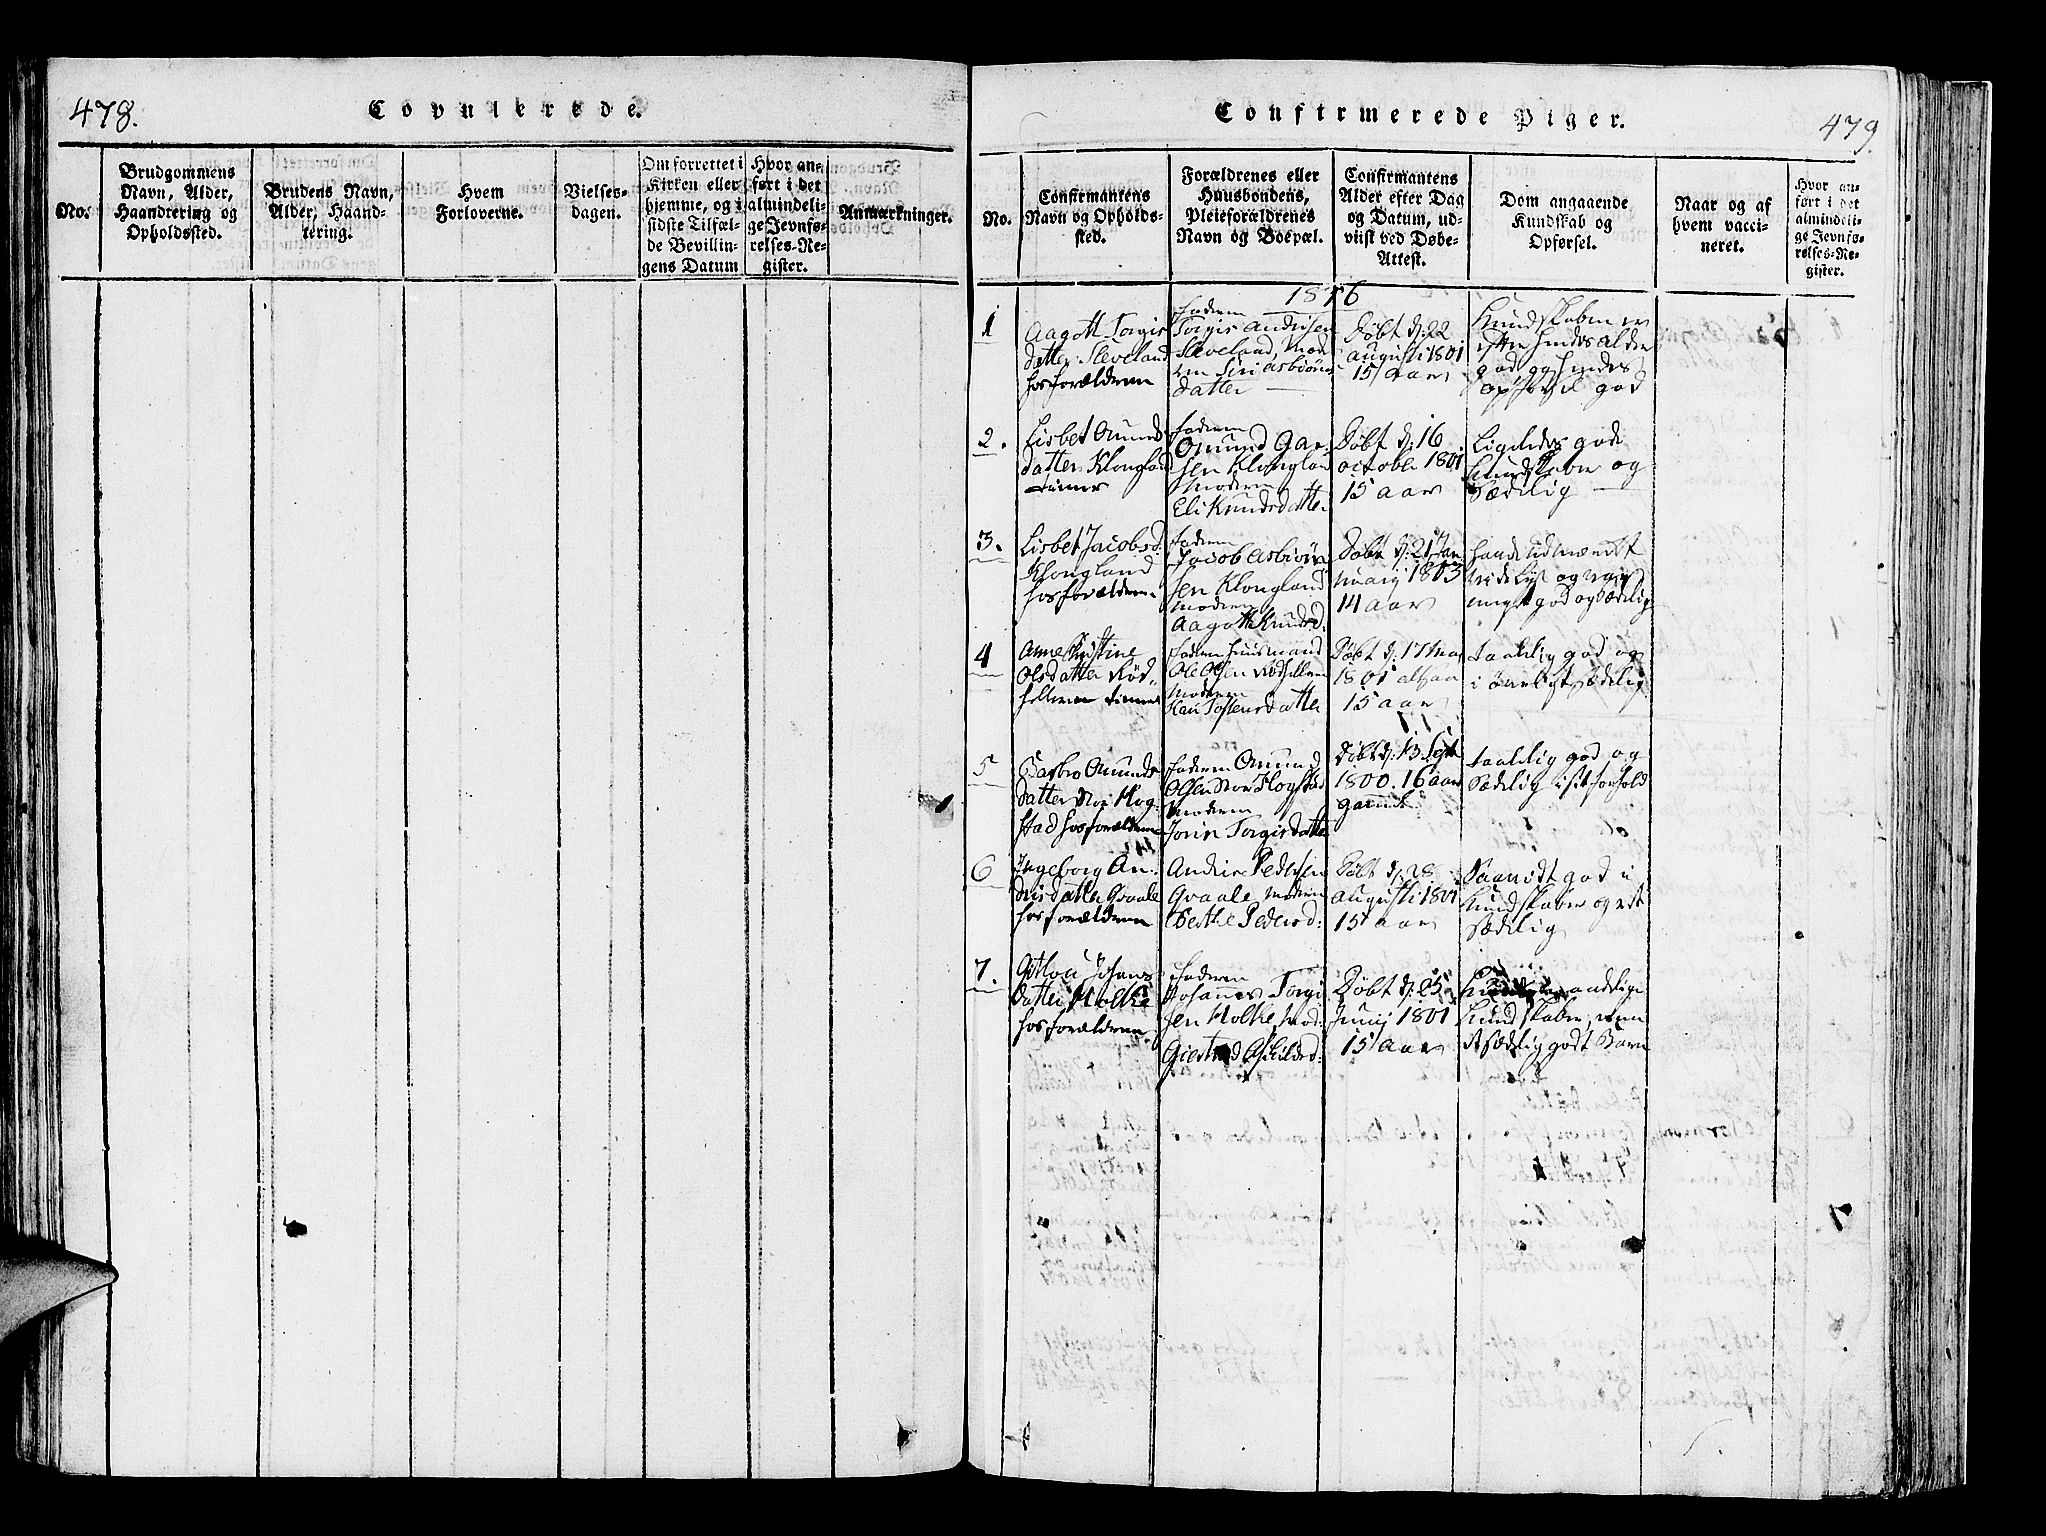 478.
Copulerede.
No.
Brudgommens
Navn, Alder,
Haandtering og
Opholdssted.
Brudens Navn,
Alder, Haand-
tering.
Hvem
Forloverne.
Vielses-
dagen.
Om forrettet i
Kirken eller
hjemme, og i
sidste Tilfæl-
de Bevillin-
gens Datum
Hvor an-
ført i det
almindeli-
ge Jevnfø-
relses-Re-
gister.
Anmærkninger.
Confirmerede Piger.
479
No.
Confirmantens
Navn og Opholds-
sted.
Forældrenes eller
Huusbondens,
Pleieforældrenes
Navn og Boepæl.
Confirmantens
Alder efter Dag
og Datum, ud-
viist ved Døbe-
Attest.
Dom angaaende
Kundskab og
Opførsel.
Naar og af
hvem vacci-
neret.
Hvor an-
ført i det
almindeli-
ge Jevnfø-
relses-Re-
gister.
1816
1
Aagott Torgis
datter Sleveland
hos forældrene
Faderen
Torgis Andrisen
Sleveland, Mod
ren Siri Asbiørns
datter
Døbt d: 22
augusti 1801
15 aar
Kundskaben er
efter hendes alder
god og hendes
opførsel god
2.
Lisbet Omunds
datter Klongland
tiener
Faderen
Omund Gar
sen Klongland
Moderen
Eli Knudsdatter
Døbt d: 16
octobr 1801
15 aar
Ligeledes gode
Kundskaber og
Sædelig
3.
Lisbet Jacobsd:
Klongland
hos forældrene
Faderen
Jacob Asbiørn
sen Klongland
Moderen
Aagott Knudsd:
Døbt d: 21 Jan
uarij 1803
14 aar
meget god og Sædelig
4
Anne Kistine
Olsdatter Rød-
helleren tiener
Faderen Huusmand
Ole Olsen Rødhelleren
Moderen
Kari Tostensdatter
Døbt d: 17 Mai
1801 altsaa
15 aar
taalelig god og
i øvrigt Sædelig
5
Barbro Omunds
datter Nør Hog
stad hos forældrene
Faderen Omund
Olsen Nør Hogstad
Moderen
Jorin Torgisdatter
Døbt d: 13 Sept
1800. 16 aar
gammel
taalelig god og
Sædelig i sit forhold
6
Ingeborg An-
drisdatter Qvaale
hos forældrene
Andris Pedersen
Qvaale Moderen
Berthe Pedersd:
Døbt d: 28
augusti 1801
15 aar
Kundskaber og ret
sædelig
7.
datter Molke
hos forældrene
Faderen
Johannes Torgi
sen Molke, Mod:
Giertrud Eskildsd:
Døbt d: 25
Junij 1801
15 Aar
Kundskaber, men
et sædelig godt Barn